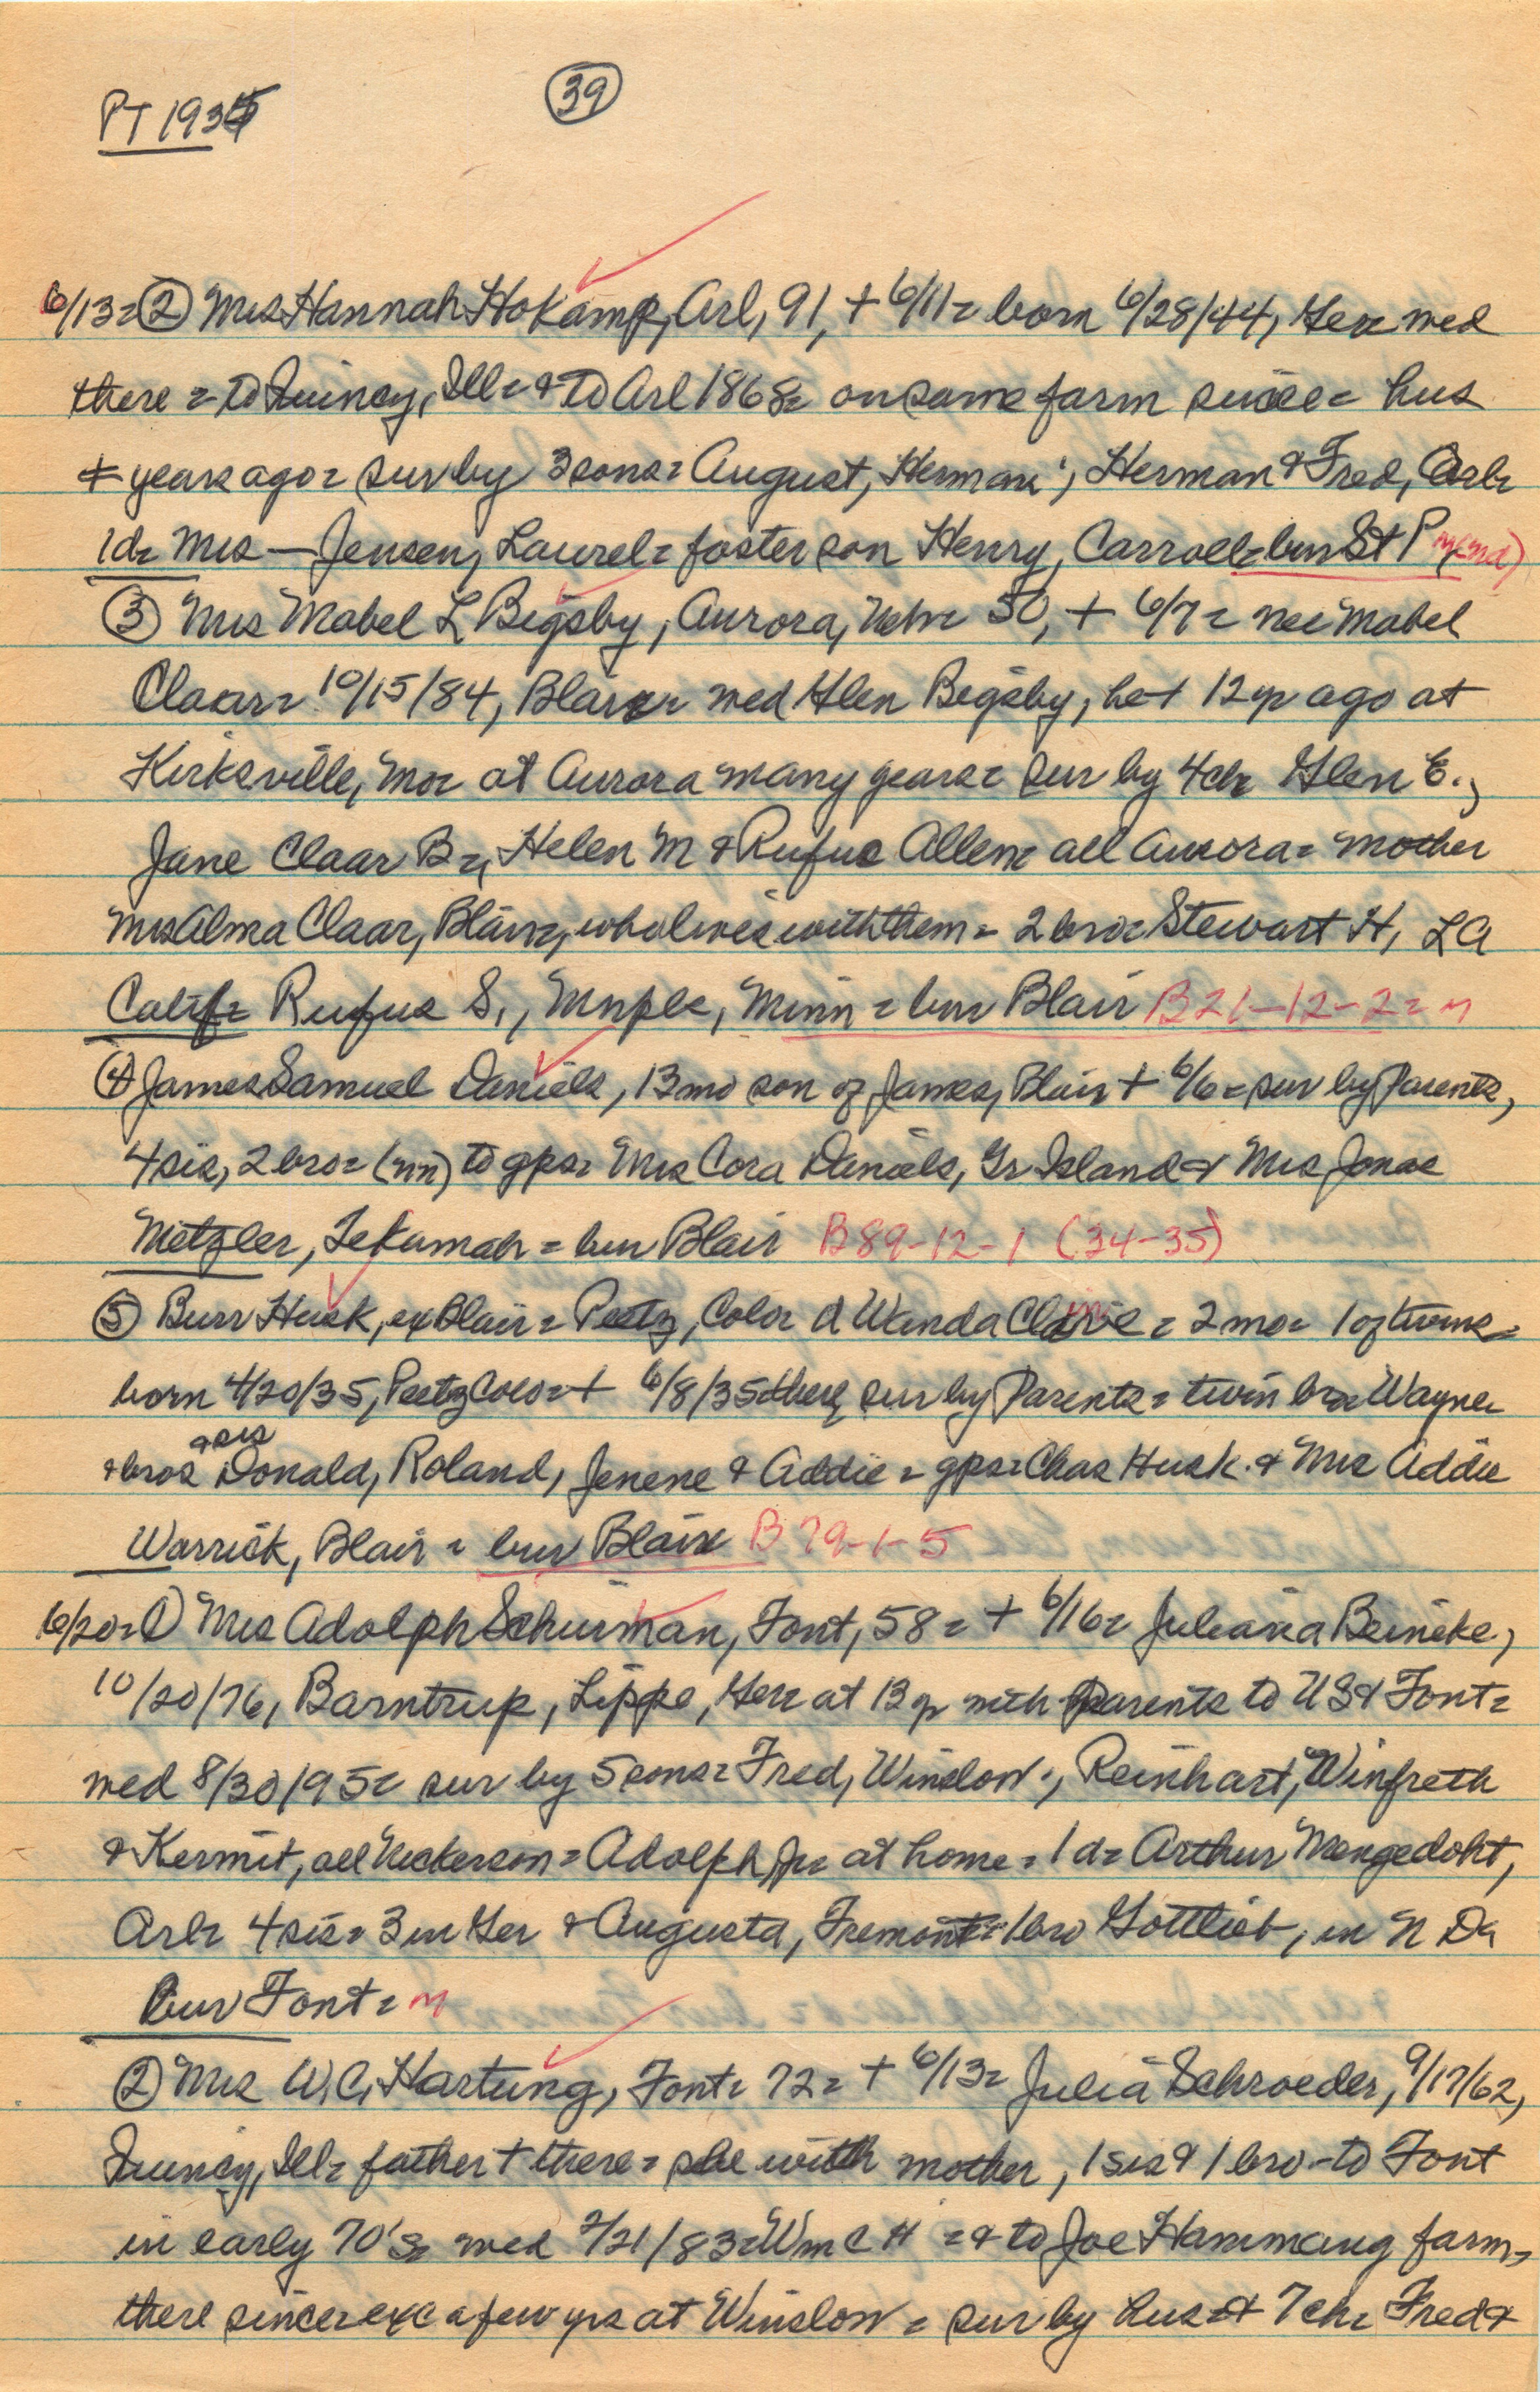 PT 1935
39
6/13= 2 Mrs Hannah Hokamp, Arl, 91, + 6/11= born 6/28/44, Ger= med
there = to Quincy, Ill= & to Arl 1868= on same farm since= hus
+ years ago= sur by 3 sons= August, Herman, Herman & Fred, Arl=
1d= Mrs — Jensen, Laurel= foster son Henry, Carroll= bur St P
3 Mrs Mabel L Bigsby, Aurora, Neb= 50, + 6/7= nee Mabel
Claar= 10/15/84, Blair= med Glen Bigsby, he + 12 yr ago at
Kirksville, Mo= at Aurora many years= sur by 4ch= Glen E.,
Jane Claar B=, Helen M & Rufus Allen= all Aurora= mother
Mrs Alma Claar, Blair, who lives with them= 2 bro= Stewart H, LA
Calif= Rufus S., Mnpls, Minn= bur Blair B21-12-2= m
4 James Samuel Daniels, 13 mo son of James, Blair + 6/6= sur by Parents,
4 sis, 2 bro= (nn) to gps= Mrs Cora Daniels, Gr Island & Mrs Jonas
Metzler, Tekamah= bur Blair B89-12-1 (34-35)
5 Burr Husk, ex Blair= Peetz, Colo= d Wanda = 2 mo= 1 of twins=
born 4/20/35, Peetz Colo= + 6/8/35 there, sur by Parents= twin bro= Wayne
& sis
& bros Donald, Roland, Jenene & Addie= gps= Chas Husk & Mrs Addie
Warrick, Blair= bur Blair B79-1-5
6/20= 1 Mrs Adolph Schurman, Font, 58= + 6/16= Juliana Beineke,
10/20/76, Barntrup, Lippe, Ger= at 13 yr with parents to US & Font=
med 8/30/95= sur by 5 sons= Fred, Winslow, Reinhart, Winfreth
& Kermit, all Nickerson= Adolph Jr= at home= 1d= Arthur Mengedoht,
Arl= 4 sis= 3 in Ger & Augusta, Fremont= 1 bro Gottlieb, in N Da
bur Font= m
2 Mrs W.C. Hartung, Font= 72= + 6/13= Julia Schroeder, 9/17/62,
Quincy, Ill= father + there= she with mother, 1 sis & 1 bro- to Font
in early 70's= med 2/21/83= Wm C H = & to Joe Hammang farm,
there since= exc a few yrs at Winslow= sur by hus= & 7 ch= Fred &